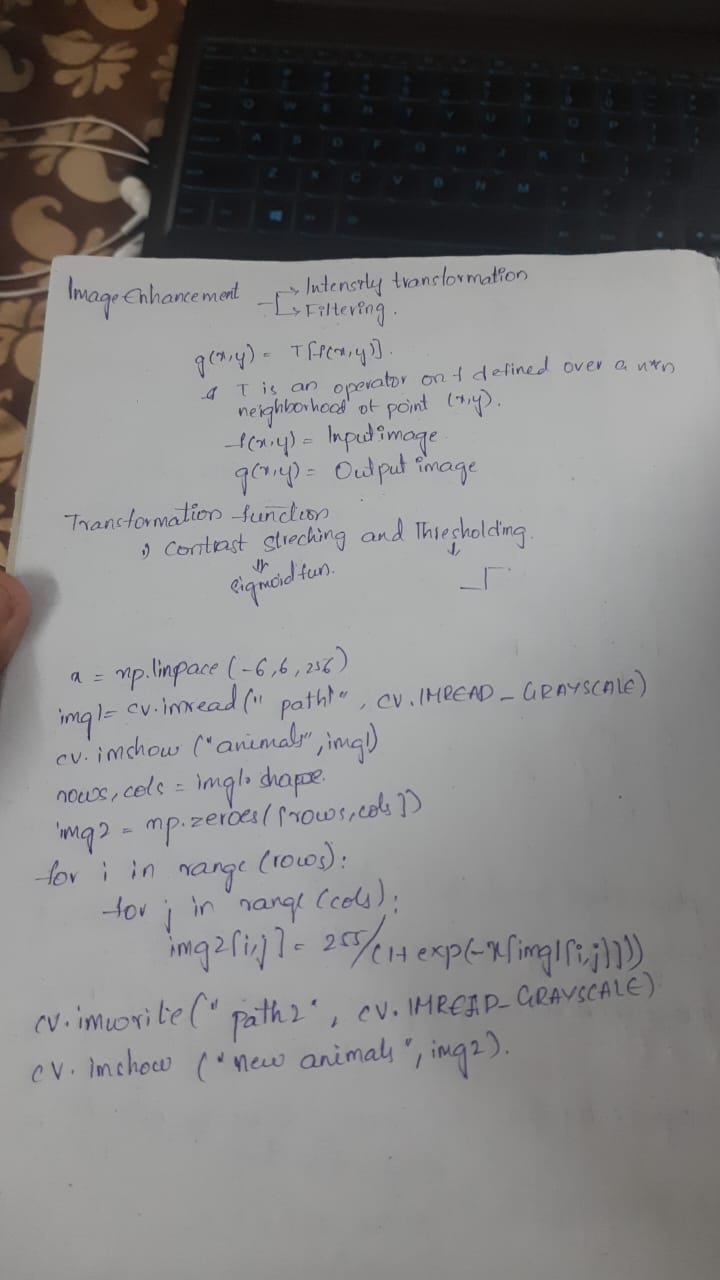 Image Enhancement → Intensity transformation
→ Filtering.
g(x,y) = T[f(x,y)].
T is an operator on f defined over a n*n
neighborhood of point (x,y).
f(x,y) = Input image
g(x,y) = Output image
Transformation function
1) Contrast Streching and Thresholding.
sigmoid fun.
x = np.linpace (-6,6,256)
img1= cv.imread (" path1" , cv.IMREAD_GRAYSCALE)
cv.imshow ("animals", img1)
rows, cols = img1.shape.
img2 = np.zeroes([rows,cols])
for i in range (rows):
for j in range (cols):
img2[i,j] = 255/(1+exp(-x[img1[i,j]]))
cv.imwrite (" path2" , cv.IMREAD_GRAYSCALE)
cv.imshow ("new animals", img2).